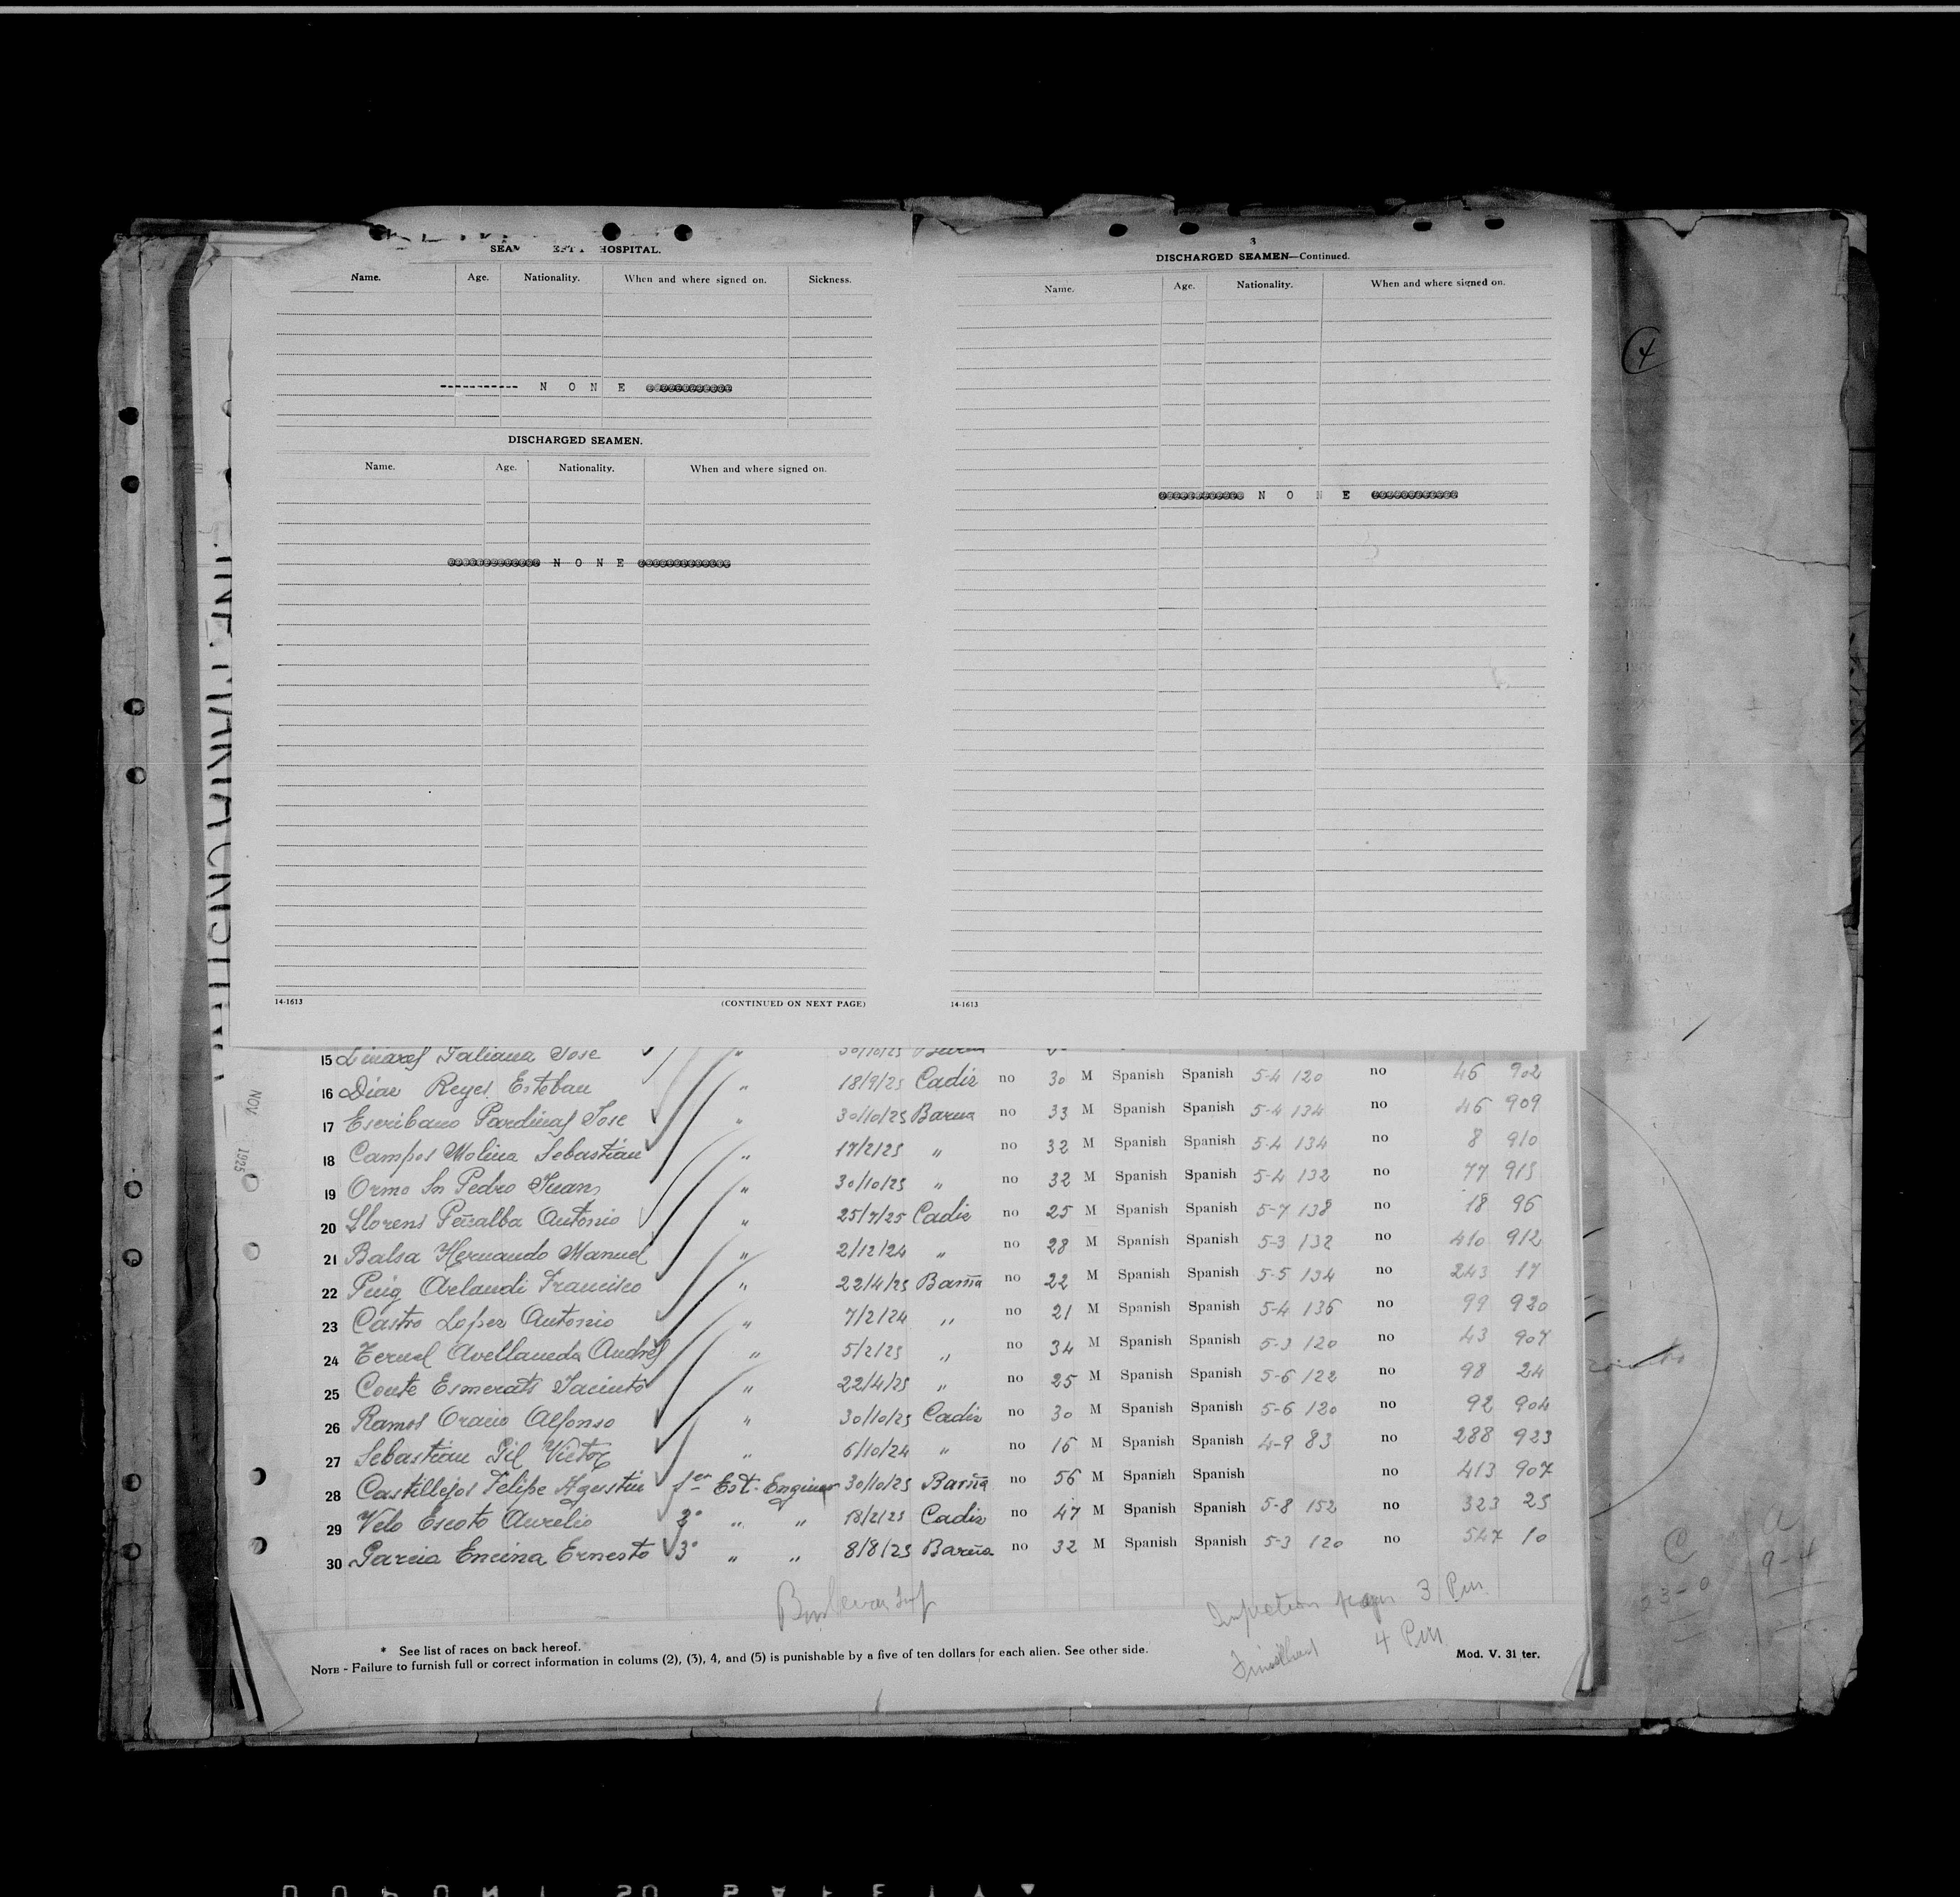 HOSPITAL.
Name. Age. Nationality. When and where signed on. Sickness.
----------- N O N E @@@@@@@@@@@@
DISCHARGED SEAMEN.
Name. Age. Nationality. When and where signed on.
@@@@@@@@@@@@ N O N E @@@@@@@@@@@@
14-1613 (CONTINUED ON NEXT PAGE)
3
DISCHARGED SEAMEN—Continued.
Name. Age. Nationality. When and where signed on.
@@@@@@@@@@@ N O N E @@@@@@@@@@@
14-1613
4
NOV 1925
15 Linares Taliana Jose " 30/10/25
16 Diar Reyes Esteban " 18/9/25 Cadiz no 30 M Spanish Spanish 5-4 120 no 46 902
17 Escribano Pardinas Jose " 30/10/25 Barna no 33 M Spanish Spanish 5-4 134 no 46 909
18 Campos Molina Sebastian " 17/2/25 " no 32 M Spanish Spanish 5-4 134 no 8 910
19 Ormo Sn Pedro Juan " 30/10/25 " no 32 M Spanish Spanish 5-4 132 no 77 915
20 Llorens Peñalba Antonio " 25/7/25 Cadiz no 25 M Spanish Spanish 5-7 138 no 18 96
21 Balsa Hernando Manuel " 2/12/24 " no 28 M Spanish Spanish 5-3 132 no 410 912
22 Puig Arlandi Francisco " 22/4/25 Barña no 22 M Spanish Spanish 5-5 134 no 243 17
23 Castro Lopez Antonio " 7/2/24 " no 21 M Spanish Spanish 5-4 136 no 99 920
24 Teruel Avellaneda Andres " 5/2/25 " no 34 M Spanish Spanish 5-3 120 no 43 907
25 Conte Esmerats Jacinto " 22/4/25 " no 25 M Spanish Spanish 5-6 122 no 98 24
26 Ramos Oracio Alfonso " 30/10/25 Cadiz no 30 M Spanish Spanish 5-6 120 no 92 904
27 Sebastian Gil Victor " 6/10/24 " no 16 M Spanish Spanish 4-9 83 no 288 923
28 Castillejos Felipe Agustin 1er Est. Engineer 30/10/25 Barña no 56 M Spanish Spanish no 413 907
29 Velo Escoto Aurelio 2º " " 18/2/25 Cadiz no 47 M Spanish Spanish 5-8 152 no 323 25
30 Garcia Encina Ernesto 3º " " 8/8/25 Barña no 32 M Spanish Spanish 5-3 120 no 547 10
Inspection 3 Pm
4 Pm
* See list of races on back hereof.
NOTE - Failure to furnish full or correct information in colums (2), (3), 4, and (5) is punishable by a five of ten dollars for each alien. See other side.
Mod. V. 31 ter.